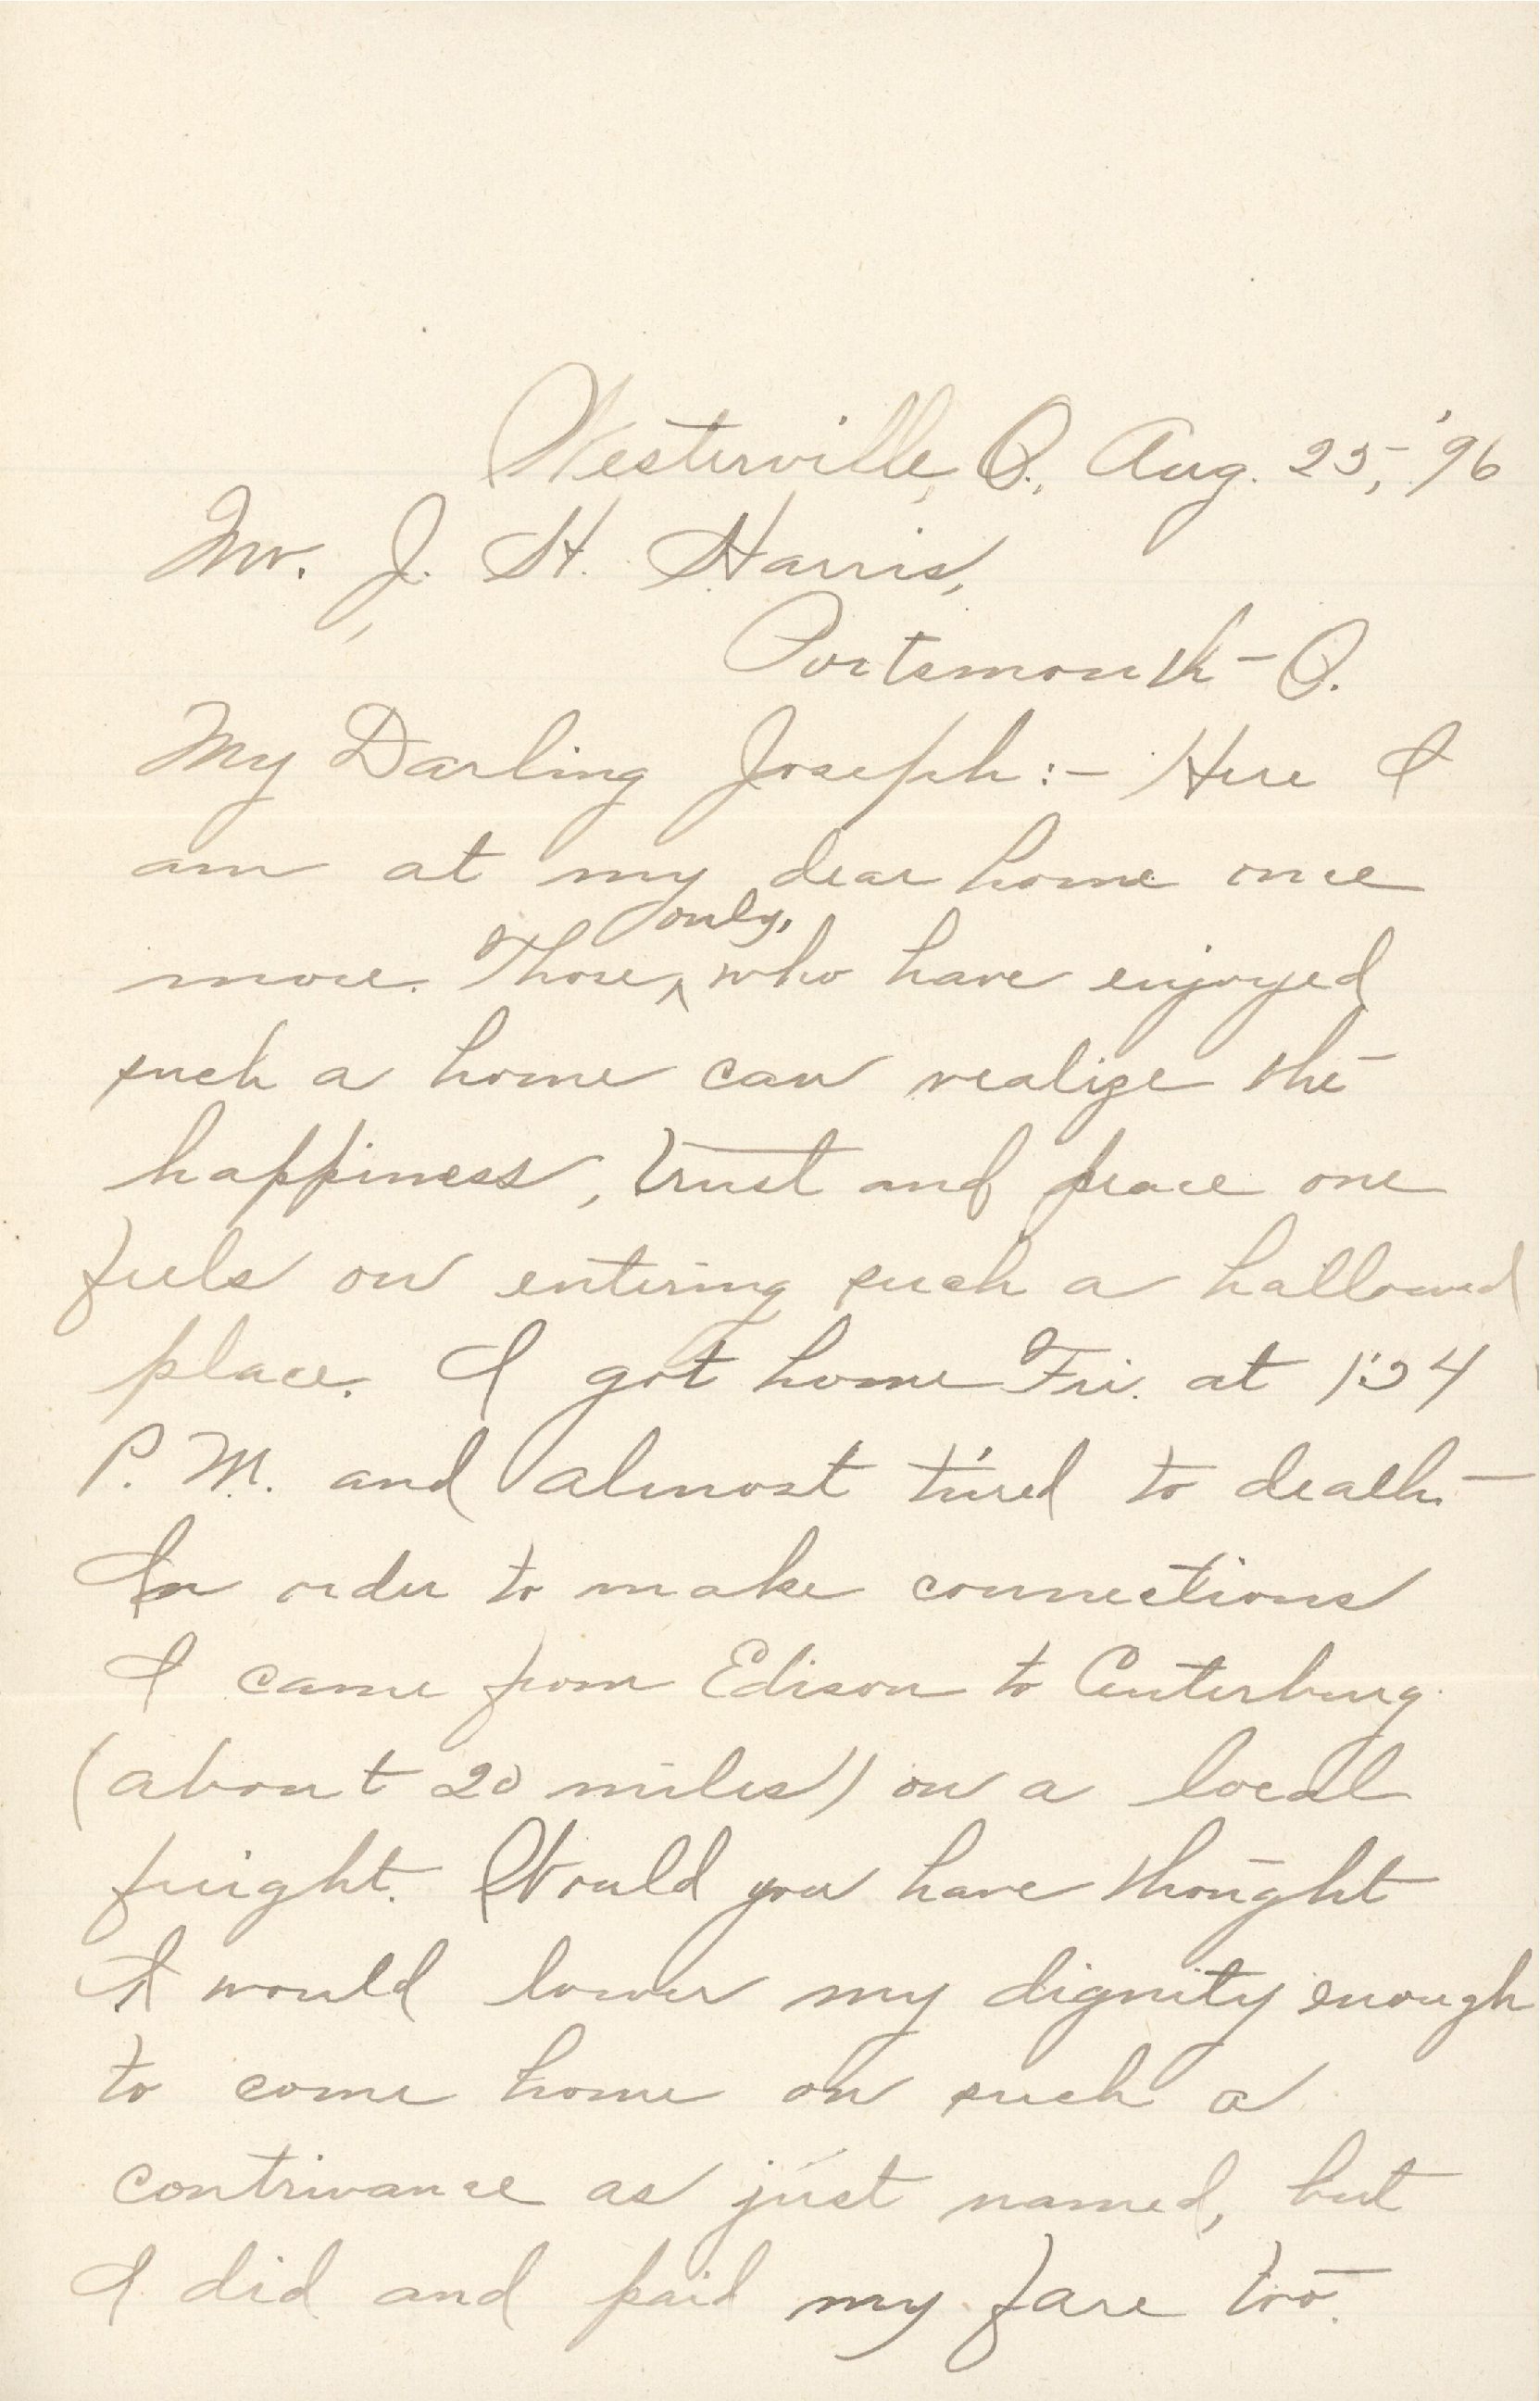 Westerville, O., Aug. 25, '96
Mr. J. H. Harris,
Portsmouth - O.
My Darling Joseph:- Here I
am at my dear home once
only,
more. Those, ^ who have enjoyed
such a home can realize the
happiness, trust and peace one
feels on entering such a hallowed
place. I got home Fri. at
P. M. and almost tired to death.
In order to make connections
I came from Edison to Centerburg
(about 20 miles) on a local
freight. Would you have thought
I would lower my dignity enough
to come home on such a
contrivance as just named, but
I did and paid my fare too.